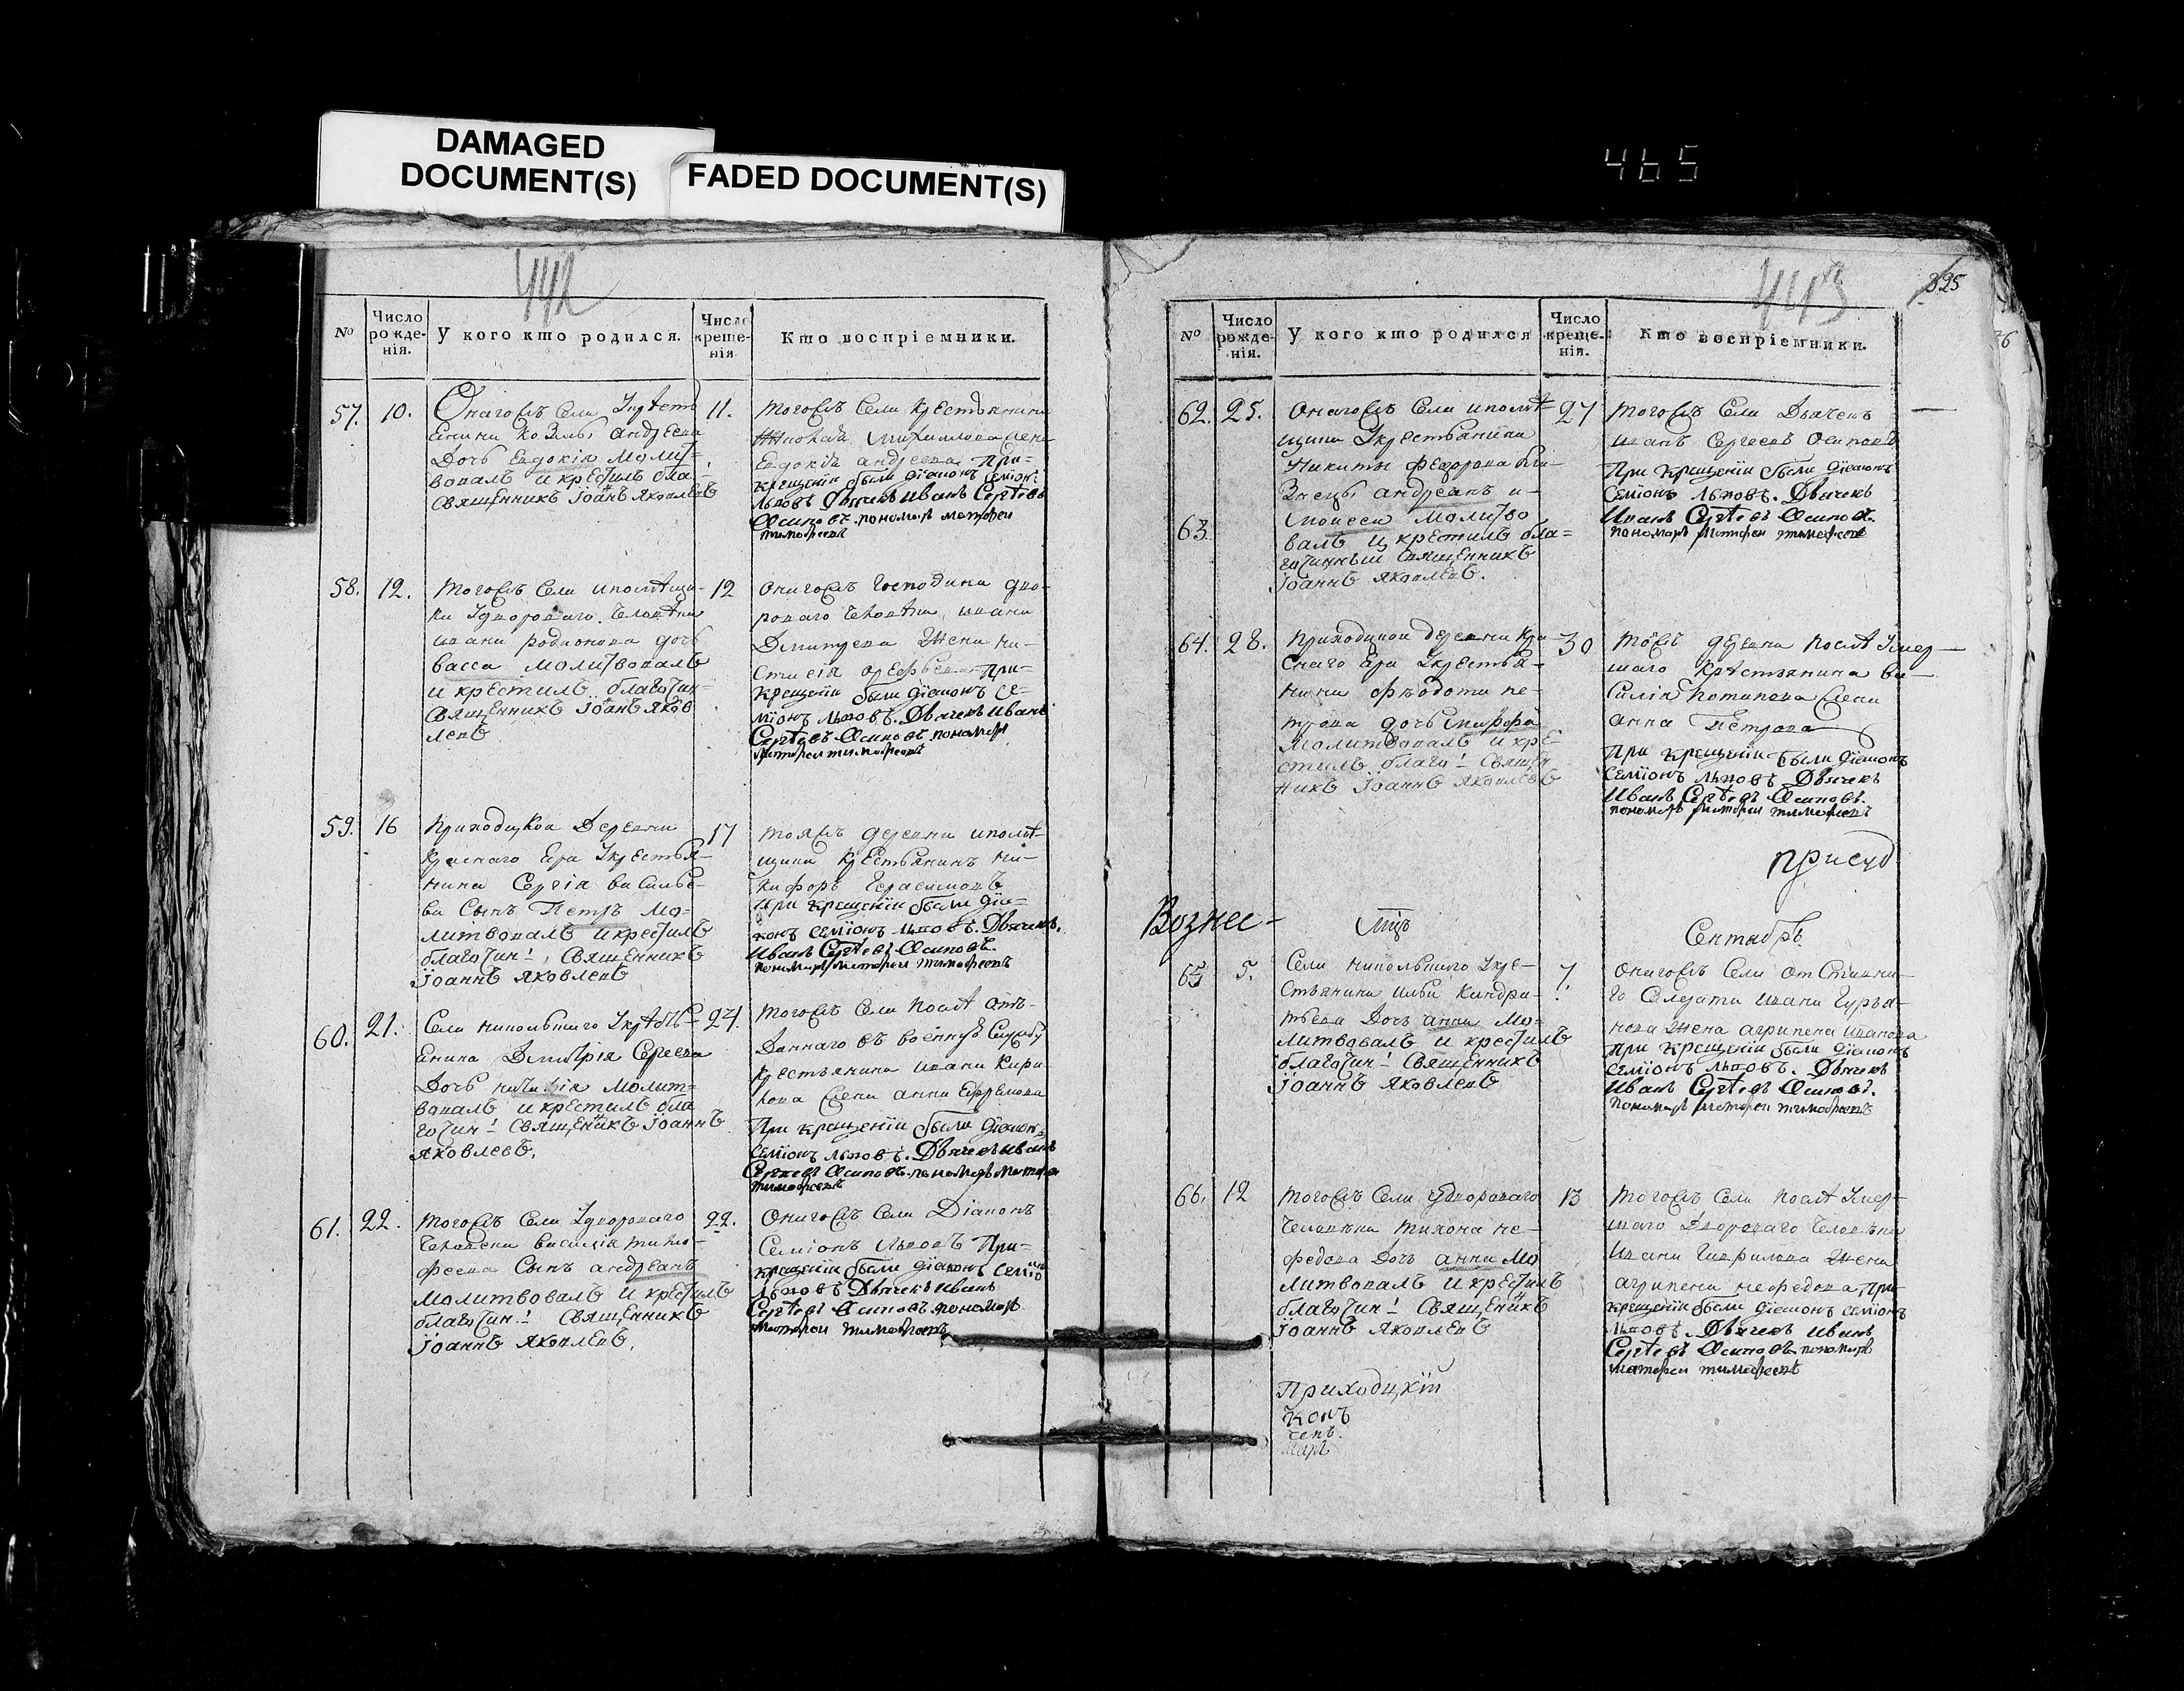 DAMAGED
DOCUMENT(S)
FADED DOCUMENT(S)
465
442
№
Число рожде-нія.
У кого кто родился.
Число креще-нія
Кто воспріемники.
57. 10.
Онагожъ Села
Козмы Андреева
Дочь Евдокія Молит-
вовалъ и крестилъ бла
Священникъ Іоанъ Яковлевъ
11.
тогожъ Села крестьянина
Михайлова жена
Евдокія Андреева При-
крещеніи были Діаконъ Семіонъ
Львовъ Дьячекъ Иванъ Сергѣевъ
Осиповъ пономарь матфеи
тимофеевъ
58. 12.
тогожъ Села
человѣка
ивана родионова дочь
васса молитвовалъ
и крестилъ благочин-
Священникъ Іоанъ Яков
левъ
12
онагожъ господина дво-
роваго человѣка ивана
Дмитрева Жена на-
стасія При-
крещеніи были Діаконъ Се-
міонъ Львовъ. Дьячекъ Иванъ
Сергѣевъ Осиповъ пономарь
матфеи тимофеевъ
59. 16
приходцкои Деревни
краснаго Яра Укрестья-
нина Сергія василье-
ва Сынъ Петръ Мо-
литвовалъ и крестилъ
благочин! Священникъ
Іоаннъ Яковлевъ
17
тояжъ деревни
крестьянинъ ни-
кифоръ Герасимовъ
при крещеніи были Діа-
конъ Семіонъ Львовъ. Дьячекъ.
Иванъ Сергѣевъ Осиповъ.
пономарь матфеи тимофеевъ
60. 21.
Села
Дмитрія Сергеева
Дочь наталія Молит-
вовалъ и крестилъ бла
гочин! Священикъ Іоаннъ
Яковлевъ.
24.
тогожъ Села после отъ-
даннаго въ военную Службу
крестьянина ивана Кири-
лова Жена анна Ефремова
При крещеніи были Діаконъ
Семіонъ Львовъ. Дьячекъ Иванъ
Сергѣевъ Осиповъ. пономарь матфеи
тимофеевъ
61. 22.
тогожъ Села Удвороваго
человека василія тимо-
феева Сынъ андреанъ
молитвовалъ и крестилъ
благочин! Священникъ
Іоаннъ Яковлевъ.
22.
онагожъ Села Діаконъ
Семіонъ Львовъ При-
крещеніи были Діаконъ Семіонъ
Львовъ Дьячекъ Иванъ
Сергѣевъ Осиповъ пономарь
матфеи тимофеевъ
443
325
№
Число рожде-нія.
У кого кто родился
Число креще-нія.
Кто воспріемники.
62. 25.
онагожъ Села
Укрестьянина
Никиты Федорова бли-
знецы андреанъ и
63.
моисеи молитво
валъ и крестилъ бла-
гочинныи Священникъ
Іоаннъ Яковлевъ.
27
тогожъ Села Дьячекъ
иванъ Сергеевъ Осиповъ
При крещеніи были Діаконъ
Семіонъ Львовъ. Дьячекъ
Иванъ Сергѣевъ Осиповъ.
пономарь матфеи тимофеевъ
64. 28.
приходцкои деревни Кра-
снаго Яра Укрестья-
нина Федота пе-
трова дочь
молитвовалъ и кре-
стилъ благо! Священ
никъ Іоаннъ Яковлевъ
30
тоежъ деревни после Умер-
шаго крестьянина ва-
силія потапова Жена
анна Петрова
При крещеніи были Діаконъ
Семіонъ Львовъ Дьячекъ
Иванъ Сергѣевъ Осиповъ.
пономарь матфеи тимофеевъ
присуд
Вознес-
Мцъ
Сентябрь.
65 5.
Села никольшаго Укре-
стьянина ильи кандра-
тьева Дочь анна Мо-
литвовалъ и крестилъ
благочин! Священникъ
Іоаннъ Яковлевъ
7.
онагожъ Села отставна-
го Солдата ивана Гурья-
нова жена агрипена иванова
при крещеніи были Діаконъ
Семіонъ Львовъ. Дьячекъ
Иванъ Сергѣевъ Осиповъ.
пономарь матфеи тимофеевъ
66. 12
тогожъ Села Удвороваго
человѣка тихона не-
федова Дочь анна Мо
литвовалъ и крестилъ
благочин! Священикъ
Іоаннъ Яковлевъ
13
тогожъ Села после Умер-
шаго Двороваго человѣка
ивана гаврилова жена
агрипена нефедова при-
крещеніи были Діаконъ Семіонъ
Львовъ. Дьячекъ Иванъ
Сергѣевъ Осиповъ пономарь
матфеи тимофеевъ
Приходцкіи